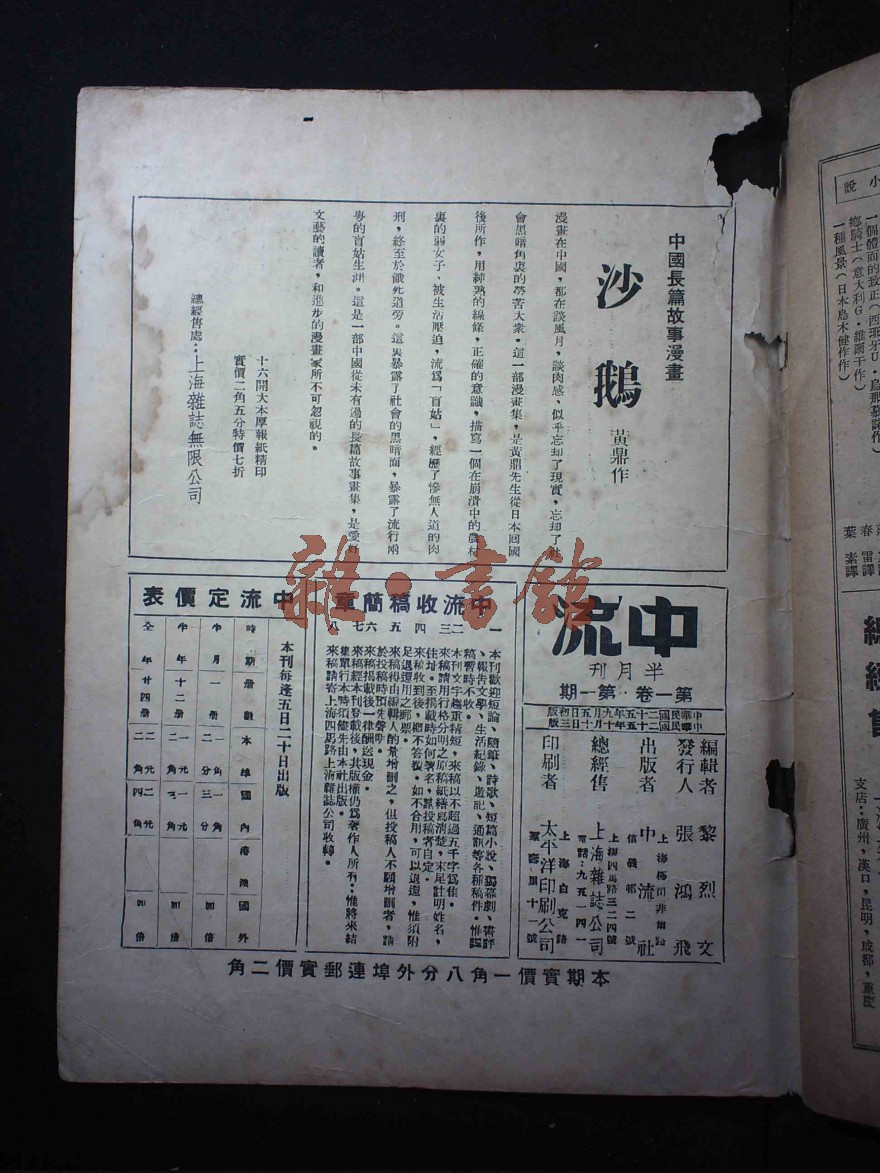 中國長篇故事漫畫
沙鵝
黃鼎作
漫畫在中國,都在談風月,談肉感,似乎忘却了現實,忘却了社
會黑暗角裏的勞苦大衆。這一部漫畫集,是黃鼎先生從日本回國
後所作,用純熟的線條,正確的意識,描寫一個在崩潰中的農村
裏的弱女子,被生活壓迫,流爲「盲姑」,經歷了慘無人道的肉
刑,終至於餓死道旁。這裏暴露了社會的黑暗面,暴露了流行兩
粵的盲姑生涯。這是一部中國從未有過的長篇故事畫集,是愛好
文藝的讀者,和進步的漫畫家所不可忽視的。
十六開大本厚報紙精印
實價二角五分特價七折
總經售處:上海雜誌無限公司
中流
半月刊
第一卷·第一期
中華民國二十五年九月五日初版
編輯者 黎烈文
發行人 張鴻飛
出版者 中流社
總經售 上海雜誌公司
上海四馬路三二四號
電話:九五一四一
印刷者 太平洋印刷公司
上海白克路
中流收稿簡章
一 本刊歡迎短論、隨筆、詩歌、短篇小說、獨幕劇、書評
、報告文學、生活紀錄、遊記、通訊等各種稿件。惟譯
稿暫時不收。
二 本刊文字趨重精短,來稿以不超過五千字爲佳。
三 來稿請用行格分明之原稿紙繕寫清楚,末尾註明姓名,
住址。至揭載時如何署名,聽投稿者自定。
四 來稿收到後,概不答覆。如不合用,可以退還,惟須附
足退還用之郵票。
五 來稿得由編輯人酌量增删之,但投稿人不願增删者,請
於投稿時預先聲明。
六 來稿揭載後一律酬送現金。
七 來稿經本刊登載後,其版權仍爲著作人所有;惟將來結
集單行本時須儘先由本社出版。
八 來稿請寄上海四馬路上海雜誌公司收轉。
中流定價表
本刊每逢五日二十日出版
時期 册數 本埠 國內 港澳 國外
半月 一册 一角二分 一角三分 加倍
半年 十二册 加倍
全年 廿四册 二元二角 二元四角 加倍
本期實價一角八分外埠連郵實價二角
雜·書館
小說
鄉騎士(意大利G·維爾干作)
一種風景(日本島木健作作)
葉素譯
支店:廣州,漢口,昆明,成都,重慶